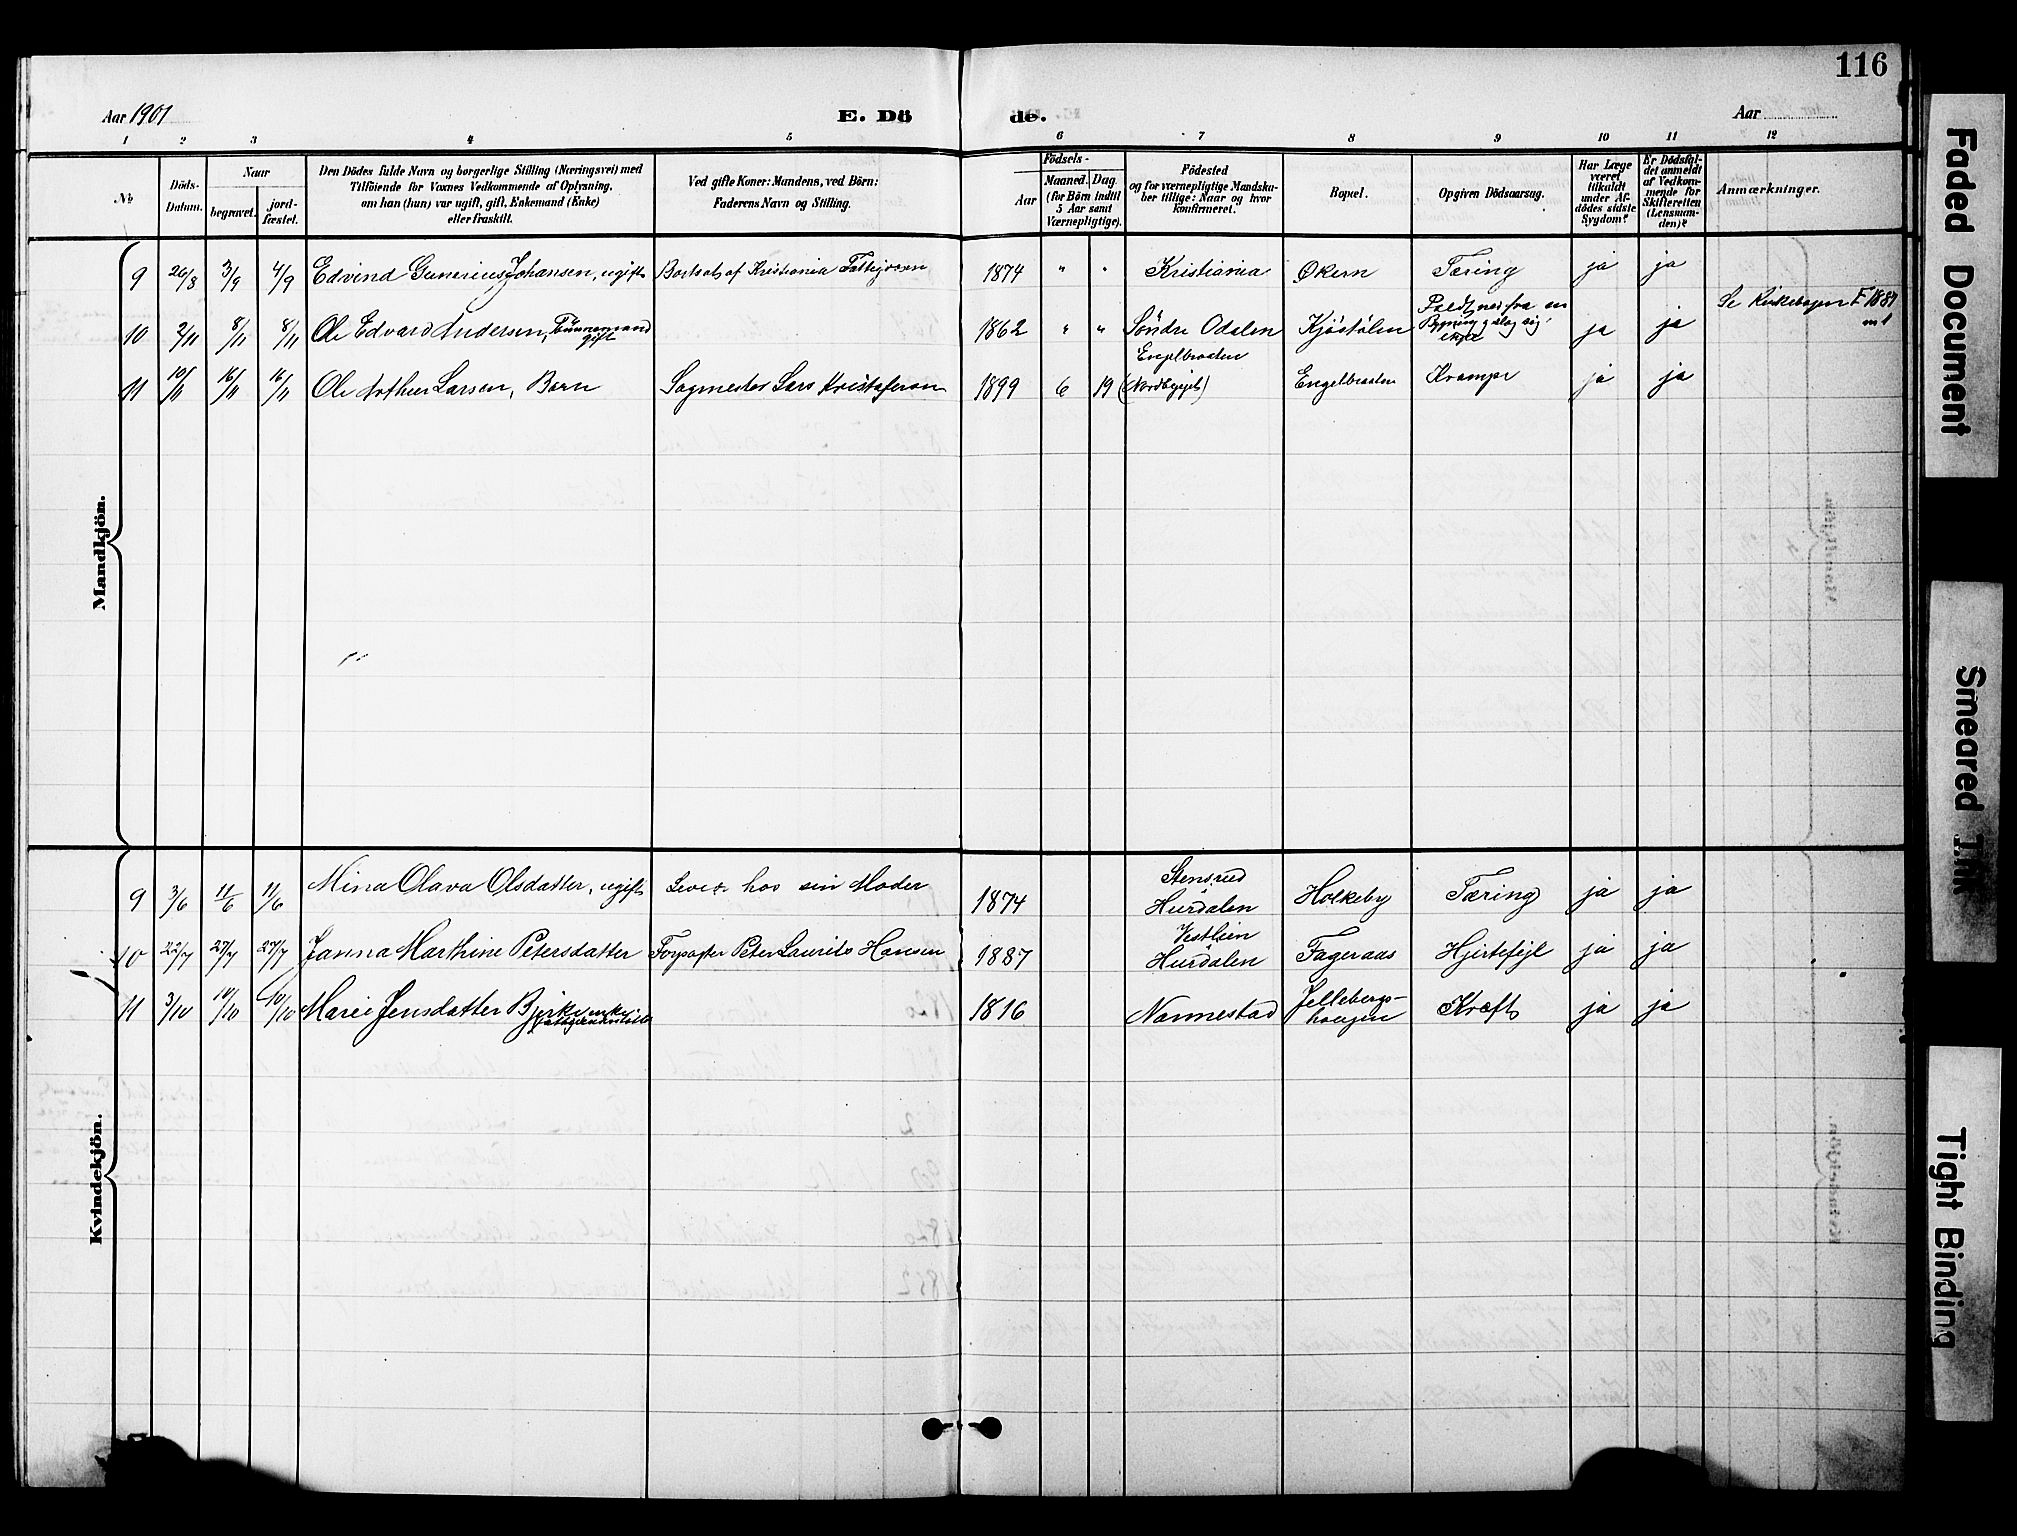 116
Aar 1901 E. Dö de. Aar
1 2 3 4 5 6 7 8 9 10 11 12
№
Döds-Datum.
Naar
begravet.
jord-fæstet.
Den Dödes fulde Navn og borgerlige Stilling (Næringsvei) med
Tilföiende for Voxnes Vedkommende af Oplysning,
om han (hun) var ugift, gift, Enkemand (Enke)
eller fraskilt.
Ved gifte Koner: Mandens, ved Börn:
Faderens Navn og Stilling.
Födsels-
Aar
Maaned. Dag.
(for Börn indtil
5 Aar samt
Værnepligtige).
Födested
og for værnepligtige Mandska-
ber tillige: Naar og hvor
konfirmeret.
Bopæl.
Opgiven Dödsaarsag.
Har Læge
været
tilkaldt
under Af-
dödes sidste
Sygdom?
Er Dödsfal-
det anmeldt
af Vedkom-
mende for
Skifteretten
(Lensman-
den)?
Anmærkninger.
Mandkjön.
9 26/8 3/9 4/9 Edvind Gunerius Johansen, ugift Bortsat af Kristiania Fattigvæsen 1874 " " Kristiania Økern Tæring ja ja
10 2/11 8/11 8/11 Ole Edvard Andersen, Tömmermand gift 1862 " " Söndre Odalen Kjöstölen Faldt ned fra en Bygning & slog sig ja ja Se Kirkebogen F 1887
11 10/11 16/11 16/11 Ole Arthur Larsen, Barn Sagmester Lars Kristofersen 1899 6 19 Engelbraaten Engelbraaten Krampe ja ja
Kvindekjön.
9 3/6 11/6 11/6 Mina Olava Olsdatter, ugift Lever hos sin Moder 1874 Stensrud Hurdalen Holkeby Tæring ja ja
10 22/7 27/7 27/7 Janna Marthine Petersdatter Peter Laurits Hansen 1887 Hurdalen Fageraas Hjertefejl ja ja
11 3/10 10/10 10/10 Marie Jensdatter Bjerke enke 1816 Nannestad Kræft ja ja
Faded Document
Smeared Ink
Tight Binding